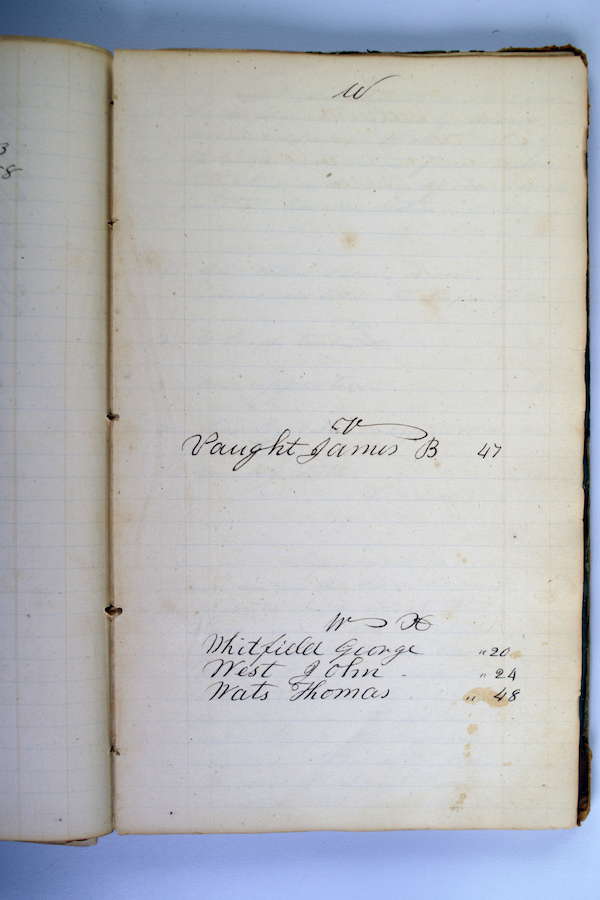 3
58
U
V
Vaught James B 47
W X
Whitfield George " 20
West John " 24
Wats Thomas " 48